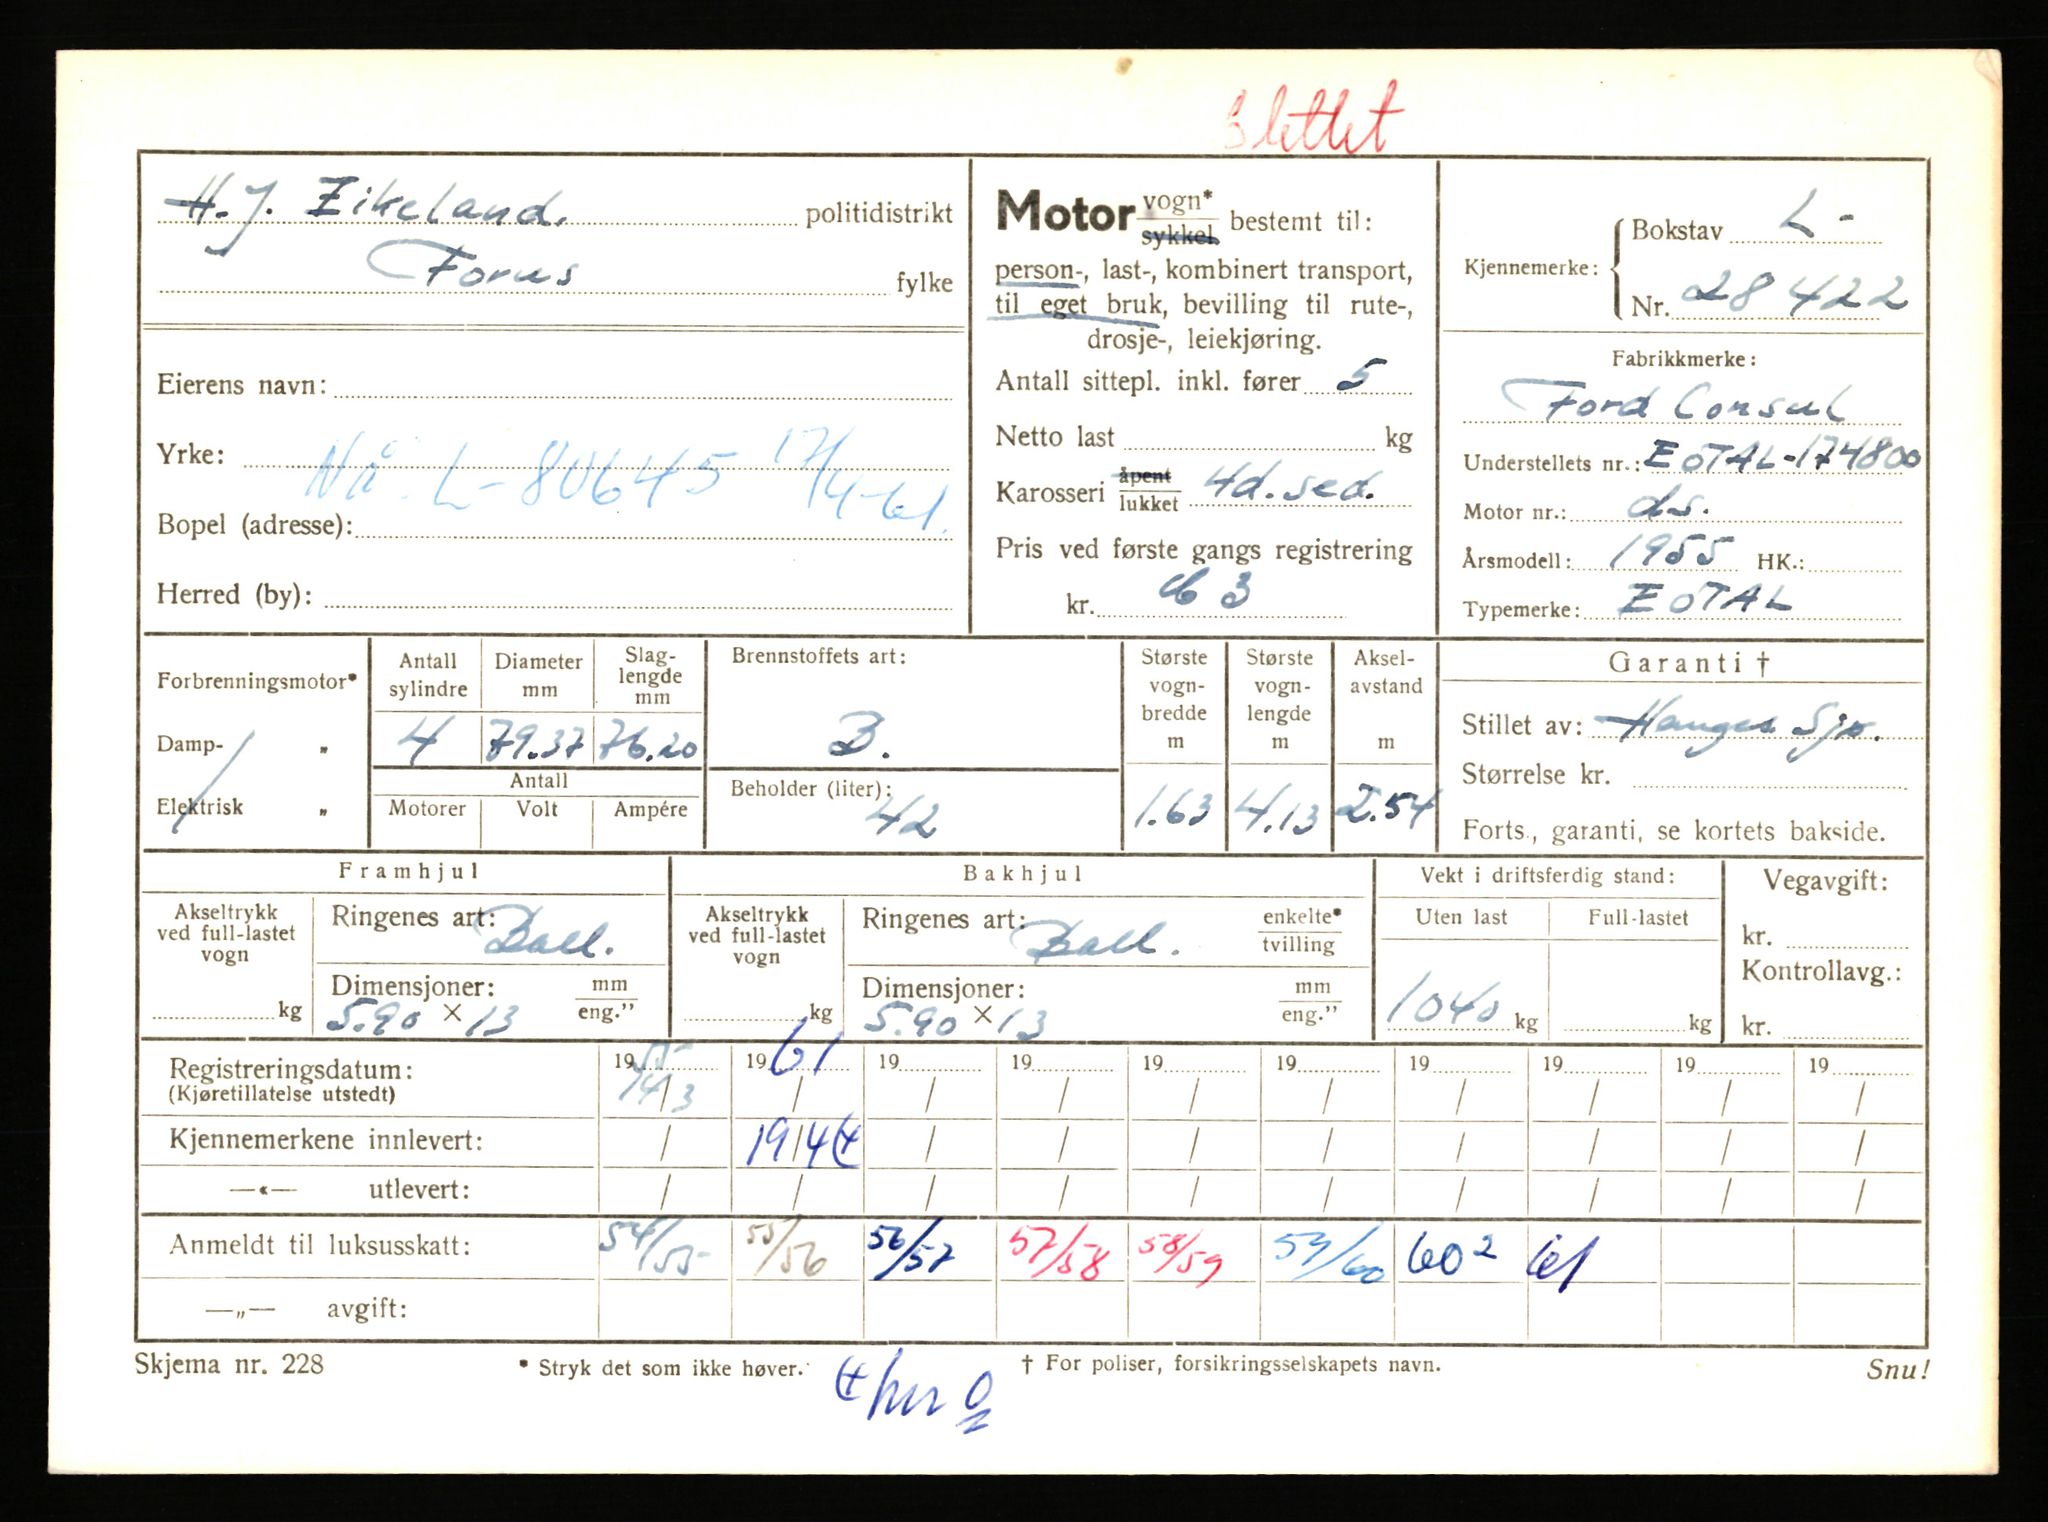 Slettet
H. J. Eikeland. politidistrikt
Forus fylke
Eierens navn:
Yrke:
Nå L-80645 17/4-61.
Bopel (adresse):
Herred (by):
Motor vogn* sykkel bestemt til:
person-, last-, kombinert transport,
til eget bruk, bevilling til rute-,
drosje-, leiekjøring.
Antall sittepl. inkl. fører 5
Netto last kg
Karosseri åpent lukket 4d. sed.
Pris ved første gangs registrering
kr.
Kjennemerke: Bokstav L-
Nr. 28422
Fabrikkmerke:
Ford Consul
Understellets nr.: EOTAL-174800
Motor nr.: ds.
Årsmodell: 1955 HK.:
Typemerke: EOTAL
Forbrenningsmotor*
Damp- „
Elektrisk „
Antall sylindre
4
Diameter mm
79.37
Slaglengde mm
76.20
Antall
Motorer Volt Ampére
Brennstoffets art:
B.
Beholder (liter):
42
Største vognbredde m
1.63
Største vognlengde m
4.13
Akselavstand m
2.54
Garanti †
Stillet av: Hauges Sjø.
Størrelse kr.
Forts., garanti, se kortets bakside.
Framhjul
Akseltrykk ved full-lastet vogn
kg
Ringenes art: Ball.
Dimensjoner: mm eng."
5.90 × 13
Bakhjul
Akseltrykk ved full-lastet vogn
kg
Ringenes art: Ball. enkelte* tvilling
Dimensjoner: mm eng."
5.90 × 13
Vekt i driftsferdig stand:
Uten last Full-lastet
1040 kg kg
Vegavgift:
kr.
Kontrollavg.:
kr.
Registreringsdatum: 1955 1961 19 19 19 19 19 19 19 19
(Kjøretillatelse utstedt) 14/3 / / / / / / / / /
Kjennemerkene innlevert: / 19/4 / / / / / / / /
—«— utlevert: / / / / / / / / / /
Anmeldt til luksusskatt: 54/55 55/56 56/57 57/58 58/59 59/60 60² 61
—„— avgift:
Skjema nr. 228
* Stryk det som ikke høver.
† For poliser, forsikringsselskapets navn.
Snu!